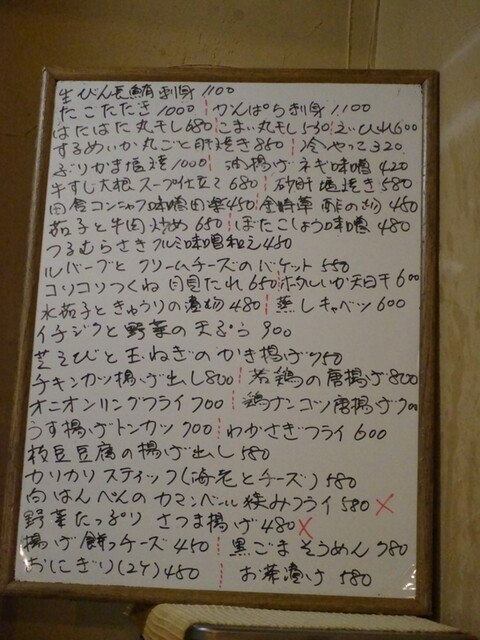 生びん長鮪刺身 1100
たこたたき 1000 かんぱち刺身 1100
はたはた丸干し 680 こまい丸干し 530 えいひれ 600
するめいか丸ごと肝焼き 860 冷やっこ 320
ぶりかま塩焼 1000 油揚げネギ味噌 420
牛すじ大根スープ仕立て 680 砂肝塩焼き 580
田舎コンニャク味噌田楽 450 金時草酢の物 480
茄子と牛肉炒め 650 ぼたこしょう味噌 480
つるむらさきクルミ味噌和え 480
ルバーブとクリームチーズのバケット 550
コリコリつくね肉貝たれ 650 ホタルいか天日干 600
水茄子ときゅうりの漬物 480 蒸しキャベツ 600
イチジクと野菜の天ぷら 900
芝えびと玉ねぎのかき揚げ 750
チキンカツ揚げ出し 800 若鶏の唐揚げ 800
オニオンリングフライ 700 鶏ナンコツ唐揚げ 700
うす揚げトンカツ 700 わかさぎフライ 600
枝豆豆腐の揚げ出し 580
カリカリスティック(海老とチーズ) 580
白はんぺんのカマンベール挟みフライ 580 ×
野菜たっぷりさつま揚げ 480 ×
揚げ餅チーズ 450 黒ごまそうめん 780
おにぎり(2ケ) 450 お茶漬け 580